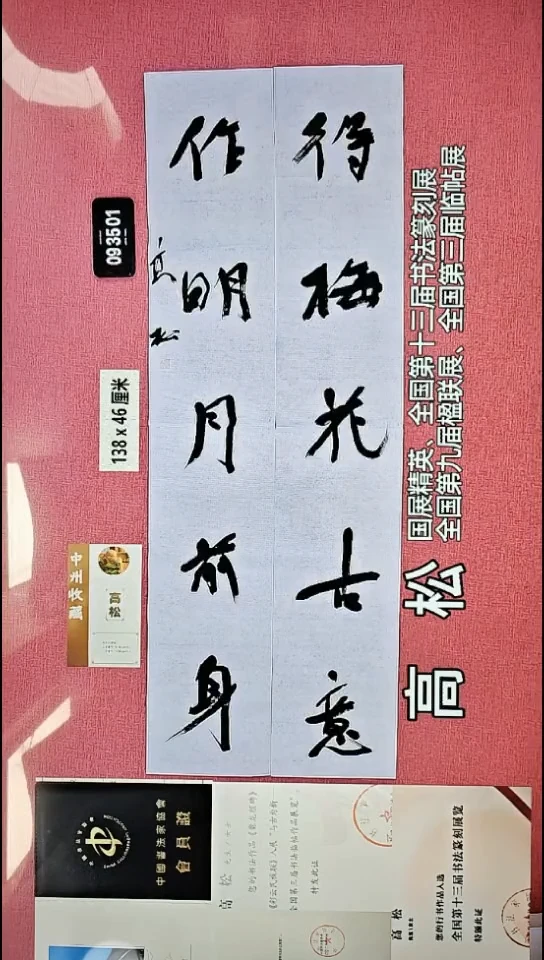 得梅花古意
作明月前身
高松
093501
138 x 46 厘米
高 松
国展精英、全国第十三届书法篆刻展
全国第九届楹联展、全国第三届临帖展
中國書法家協會
會員證
高 松
特发此证
高 松
您的行书作品入选
全国第十三届书法篆刻展览
特颁此证